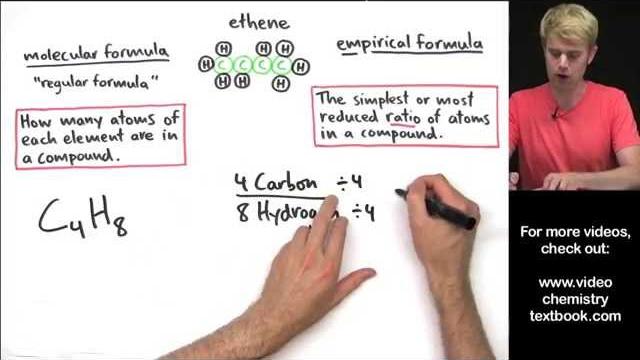 ethene
molecular formula
"regular formula"
How many atoms of
each element are in
a compound.
C₄H₈
H H H
H C C C C H
H H H
empirical formula
The simplest or most
reduced ratio of atoms
in a compound.
4 Carbon ÷4
8 Hydrogen ÷4
For more videos,
check out:
www.video
chemistry
textbook.com